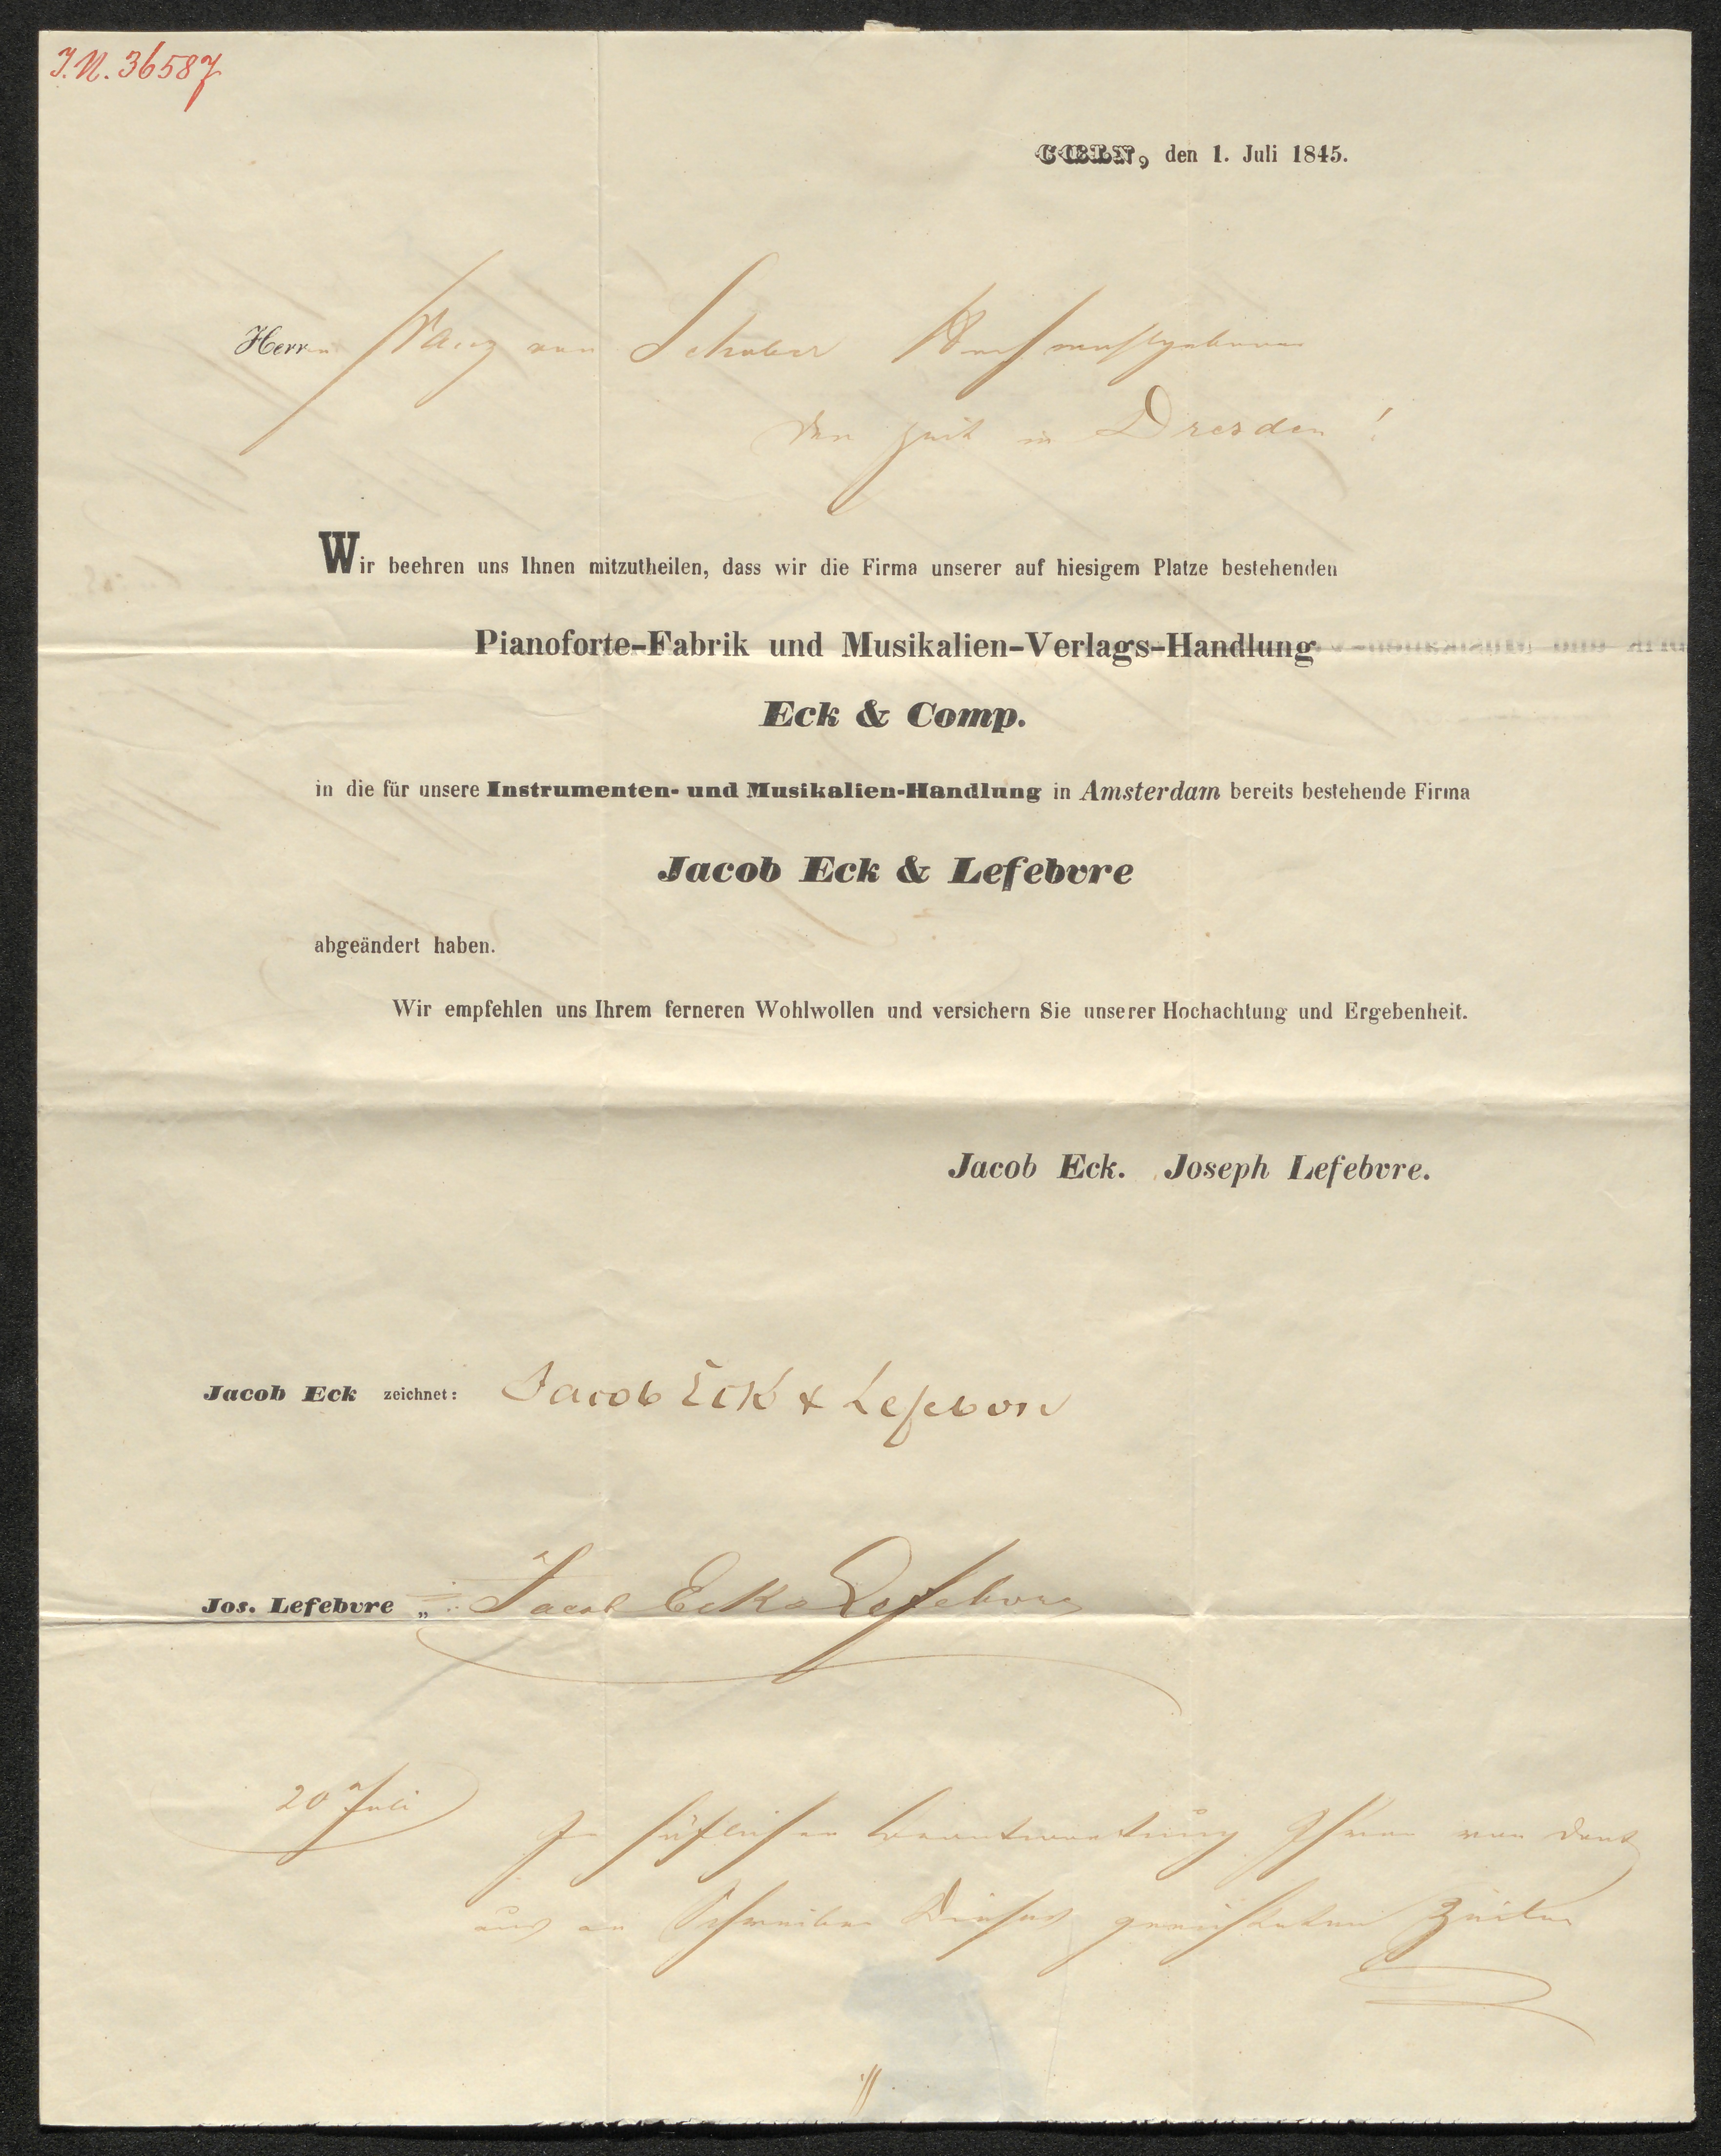 I.N. 36587
CŒLN, den 1. Juli 1845.
Herrn Franz von Schober Hochwohlgeboren
der Zeit in Dresden!
Wir beehren uns Ihnen mitzutheilen, dass wir die Firma unserer auf hiesigem Platze bestehenden
Pianoforte-Fabrik und Musikalien-Verlags-Handlung
Eck & Comp.
in die für unsere Instrumenten- und Musikalien-Handlung in Amsterdam bereits bestehende Firma
Jacob Eck & Lefebvre
abgeändert haben.
Wir empfehlen uns Ihrem ferneren Wohlwollen und versichern Sie unserer Hochachtung und Ergebenheit.
Jacob Eck. Joseph Lefebvre.
Jacob Eck zeichnet: Jacob Eck & Lefebvre
Jos. Lefebvre „ Jacob Eck & Lefebvre
20 Juli
In höflicher Beantwortung Ihrer von dort
aus an Schreiber Dieses gerichteten Zeilen